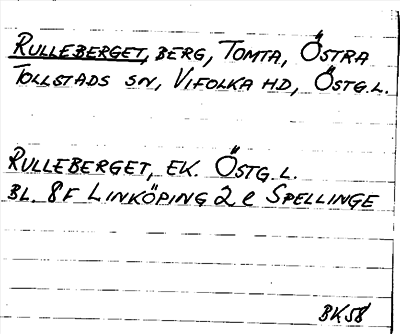 RULLEBERGET, BERG, TOMTA, ÖSTRA
TOLLSTADS SN, VIFOLKA HD, ÖSTG.L.
RULLEBERGET, EK. ÖSTG.L.
BL. 8F LINKÖPING 2 e SPELLINGE
BK58